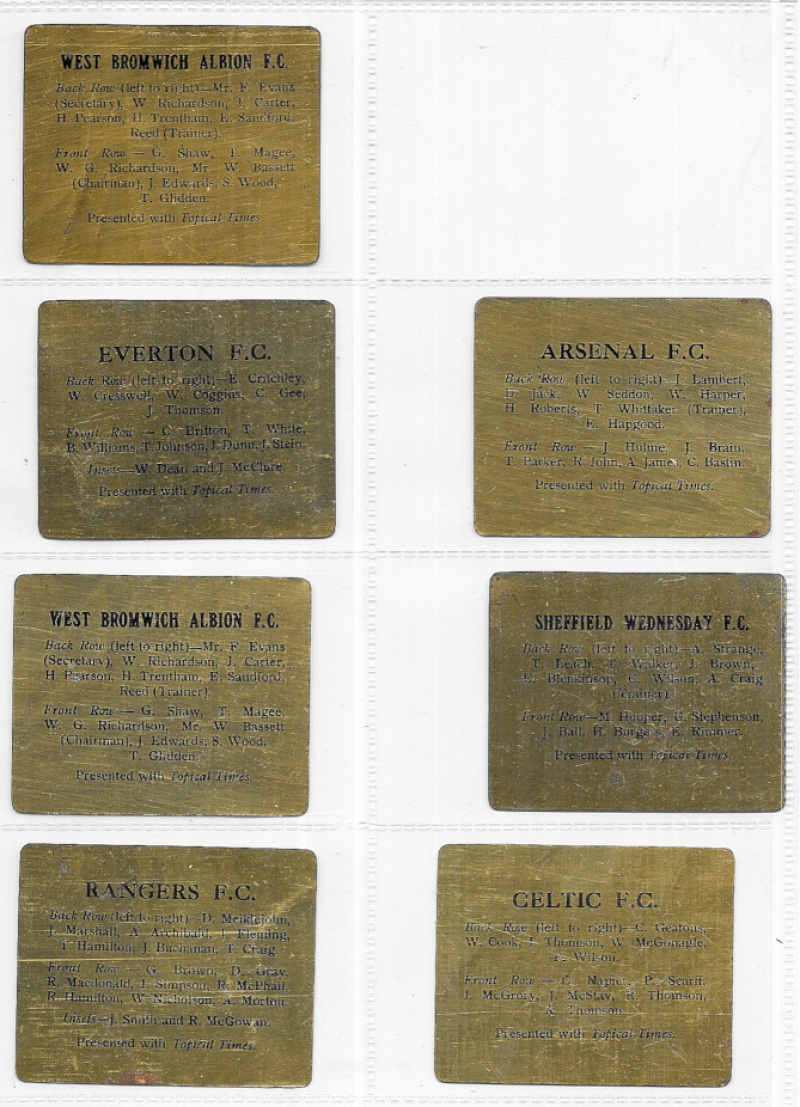 WEST BROMWICH ALBION F.C.
Back Row (left to right)—Mr. F. Evans
(Secretary), W. Richardson, J. Carter,
H. Pearson, H. Trentham, E. Sandford,
Reed (Trainer).
Front Row — G. Shaw, T. Magee,
W. G. Richardson, Mr. W. Bassett
(Chairman), J. Edwards, S. Wood,
T. Glidden.
Presented with Topical Times.
EVERTON F.C.
Back Row (left to right)—E. Critchley,
W. Cresswell, W. Coggins, C. Gee,
J. Thomson.
Front Row — C. Britton, T. White,
B. Williams, T. Johnson, J. Dunn, J. Stein.
Insets—W. Dean and J. McClure
Presented with Topical Times.
ARSENAL F.C.
Back Row (left to right)—J. Lambert,
D. Jack, W. Seddon, W. Harper,
H. Roberts, T. Whittaker (Trainer),
E. Hapgood.
Front Row — J. Hulme, J. Brain,
T. Parker, R. John, A. James, C. Bastin.
Presented with Topical Times.
WEST BROMWICH ALBION F.C.
Back Row (left to right)—Mr. F. Evans
(Secretary), W. Richardson, J. Carter,
H. Pearson, H. Trentham, E. Sandford,
Reed (Trainer).
Front Row — G. Shaw, T. Magee,
W. G. Richardson, Mr. W. Bassett
(Chairman), J. Edwards, S. Wood,
T. Glidden.
Presented with Topical Times.
SHEFFIELD WEDNESDAY F.C.
Back Row (left to right)—A. Strange,
T. Leach, T. Walker, J. Brown,
E. Blenkinsop, C. Wilson, A. Craig
(Trainer).
Front Row—M. Hooper, G. Stephenson,
J. Ball, H. Burgess, E. Rimmer.
Presented with Topical Times.
RANGERS F.C.
Back Row (left to right)—D. Meiklejohn,
J. Marshall, A. Archibald, J. Fleming,
T. Hamilton, J. Buchanan, T. Craig.
Front Row — G. Brown, D. Gray,
R. Macdonald, J. Simpson, R. McPhail,
R. Hamilton, W. Nicholson, A. Morton.
Insets—J. Smith and R. McGowan.
Presented with Topical Times.
CELTIC F.C.
Back Row (left to right)—C. Geatons,
W. Cook, J. Thomson, W. McGonagle,
P. Wilson.
Front Row — C. Napier, P. Scarff,
J. McGrory, J. McStay, R. Thomson,
A. Thomson.
Presented with Topical Times.